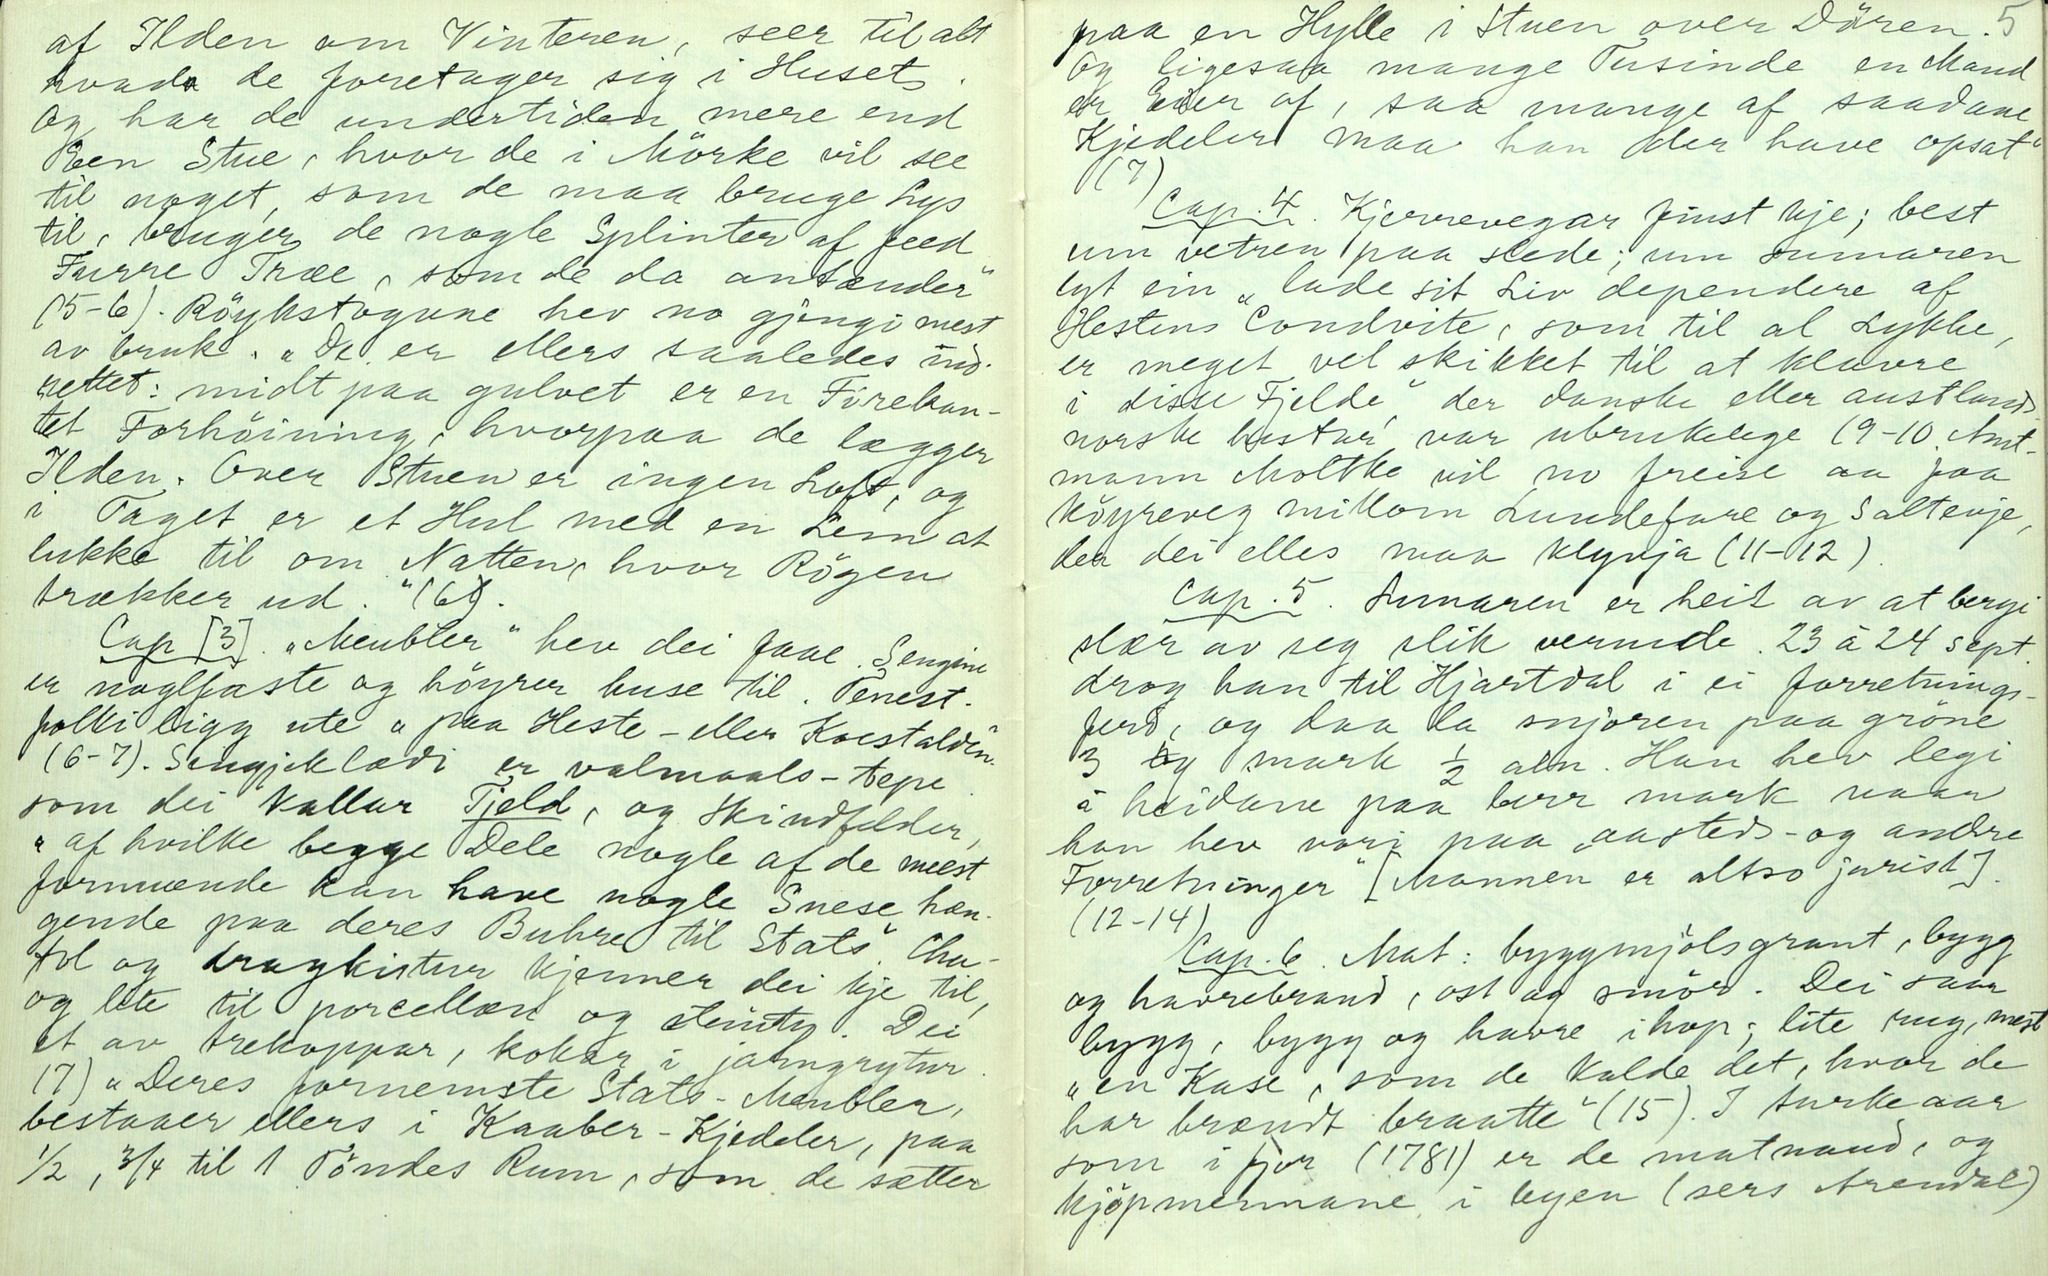 af Ilden om Vinteren, seer til alt
hvad de foretager sig i Huset.
Og har de undertiden mere end
Een Stue, hvor de i Mörke vil see
til noget, som de maa bruge Lys
til, bruger de nogle Splinter af feed
Furre Træe, som de da antænder"
(5-6). Röykstogune hev no gjengi mest
av bruk. "De er ellers saaledes ind-
rettet: midt paa gulvet er en Firekan-
tet Forhöining, hvorpaa de lægger
Ilden. Over Stuen er ingen Loft, og
i Taget er et Hul med en Lem at
lukke til om Natten, hvor Rögen
trækker ud." (6).
Cap [3]. "Meubler" hev dei faae. Sengine
er naglfaste og höyrer huse til. Tenest-
folki ligg ute "paa Heste- eller Koestalden"
(6-7). Sengjeklædi er valmaals-tepe
som dei kallar Tjeld, og Skindfelder,
"af hvilke begge Dele nogle af de meest
formuende kan have nogle Snese hæn-
gende paa deres Buhre til Stats". Cha-
tol og dragkistur kjenner dei kje til,
og lite til porcellæn og steinty. Dei
et av trekoppar, kokar i jarngrytur.
(7) "Deres fornemste Stats-Meubler,
bestaaer ellers i Kaaber-Kjedeler, paa
1/2, 3/4 til 1 Töndes Rum, som de sætter
paa en Hylle i Stuen over Dören. 5
Og ligesaa mange Tusinde en Mand
er Eier af, saa mange af saadane
Kjedeler maa han der have opsat"
(7)
Cap. 4. Kjerrevegar finst kje; best
um vetren paa slede; um sumaren
lyt ein "lade sit Liv dependere af
Hestens Condvite, som til al Lykke,
er meget vel skikket til at klavre
i disse Fjelde", der danske eller austlands-
norske hestar var ubrukelege (9-10. Amt-
mann Moltke vil no freise aa faa
köyreveg millom Lundefare og Saltenje,
der dei elles maa klyvja (11-12).
Cap. 5. Sumaren er heit av at bergi
slær av seg slik vermde. 23 à 24 sept.
drog han til Hjartdal i ei forretnings-
ferd, og daa la snjoren paa gröne
3 mark 1/2 aln. Han hev legi
i heidane paa berr mark naar
han hev vori paa "aasteds- og andre
Forretninger" [Mannen er altso jurist].
(12-14)
Cap. 6. Mat: byggmjölsgraut, bygg
og havrebraud, ost og smör. Dei saar
bygg, bygg og havre ihop; lite rug, mest
"en Kase, som de kalde det, hvor de
har brændt braatte" (15). I turkeaar
som i fjor (1781) er de matnaud, og
kjöpmennane i byen (sers Arendal)